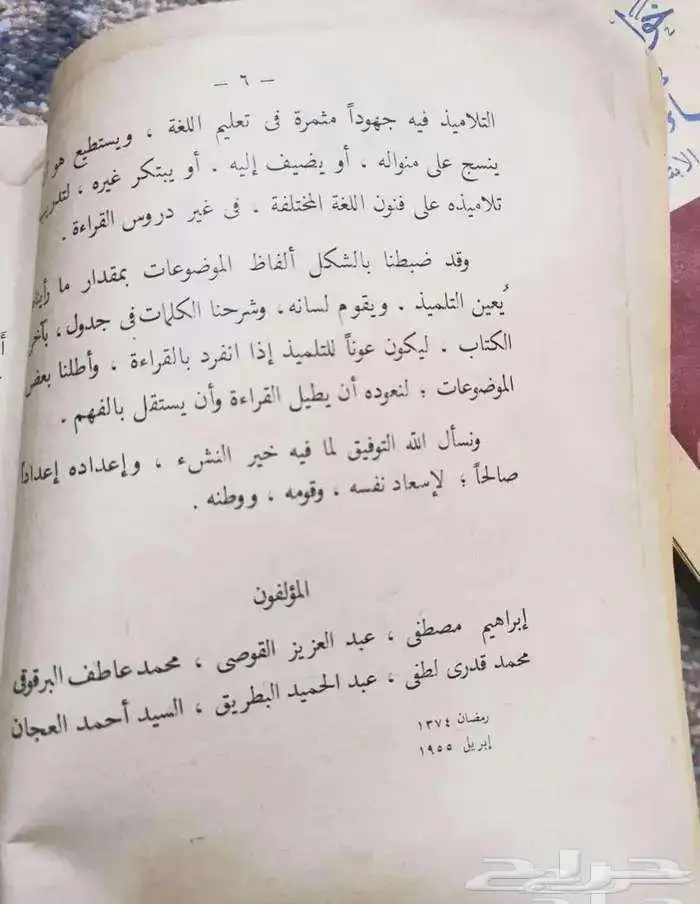 — ٦ —
التلاميذ فيه جهوداً مثمرة فى تعليم اللغة ، ويستطيع هو
ينسج على منواله ، أو يضيف إليه . أو يبتكر غيره ، لتدريب
تلاميذه على فنون اللغة المختلفة . فى غير دروس القراءة .
وقد ضبطنا بالشكل ألفاظ الموضوعات بمقدار ما رأيناه
يُعين التلميذ . ويقوم لسانه ، وشرحنا الكلمات فى جدول ، بآخر
الكتاب . ليكون عوناً للتلميذ إذا انفرد بالقراءة ، وأطلنا بعض
الموضوعات ؛ لنعوده أن يطيل القراءة وأن يستقل بالفهم .
ونسأل الله التوفيق لما فيه خير النشء ، وإعداده إعداداً
صالحاً ؛ لإسعاد نفسه ، وقومه ، ووطنه .
المؤلفون
إبراهيم مصطفى ، عبد العزيز القوصى ، محمد عاطف البرقوقى
محمد قدرى لطفى ، عبد الحميد البطريق ، السيد أحمد العجان
رمضان ١٣٧٤
إبريل ١٩٥٥
حراج